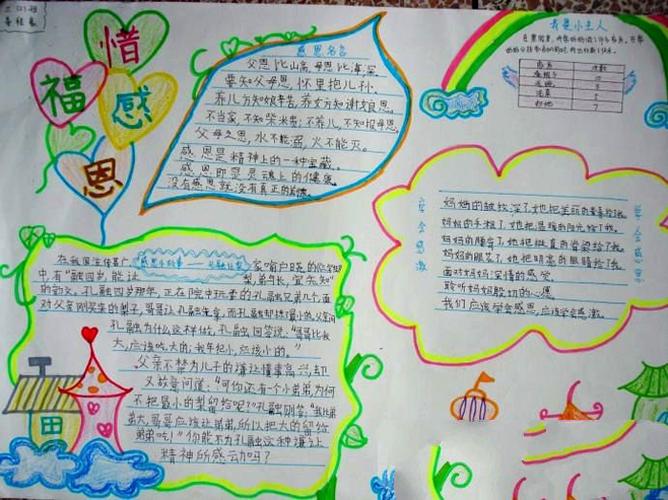 惜
福
感
恩
感恩名言
父恩比山高,母恩比海深。
要知父母恩,怀里抱儿孙。
养儿方知娘辛苦,养女方知谢娘恩。
不当家,不知柴米贵;不养儿,不知报母恩。
父母之恩,水不能溺,火不能灭。
感恩是精神上的一种宝藏。
感恩即是灵魂上的健康。
没有感恩就没有真正的美德。
我是小主人
次数
妈妈的皱纹深了,她把美丽的青春给了我。
妈妈的手粗了,她把温暖的阳光给了我。
妈妈的腰弯了,她把挺直的脊梁给了我。
妈妈的眼花了,她把明亮的眼睛给了我。
面对妈妈深情的感觉
聆听妈妈殷切的心愿
我们应该学会感恩,应该学会感激。
学会感激
学会感恩
感恩小故事——孔融让梨
中有“融四岁,能让梨,弟于长,宜先知”
的句文。孔融四岁那年,正在院中玩耍的孔融兄弟几个,面
孔融为什么这样做,孔融回答说:“哥哥比我
大,应该吃大的;我年纪小,应该小的。”
父亲不禁为儿子的谦让懂事高兴,却
又故意问道:“可你还有个小弟弟,为何
不把最小的梨留给呢?”孔融则答:“我比弟
弟大,哥哥应该让弟弟,所以把大的留给
弟弟吃!”你能不为孔融这种谦让
精神所感动吗?